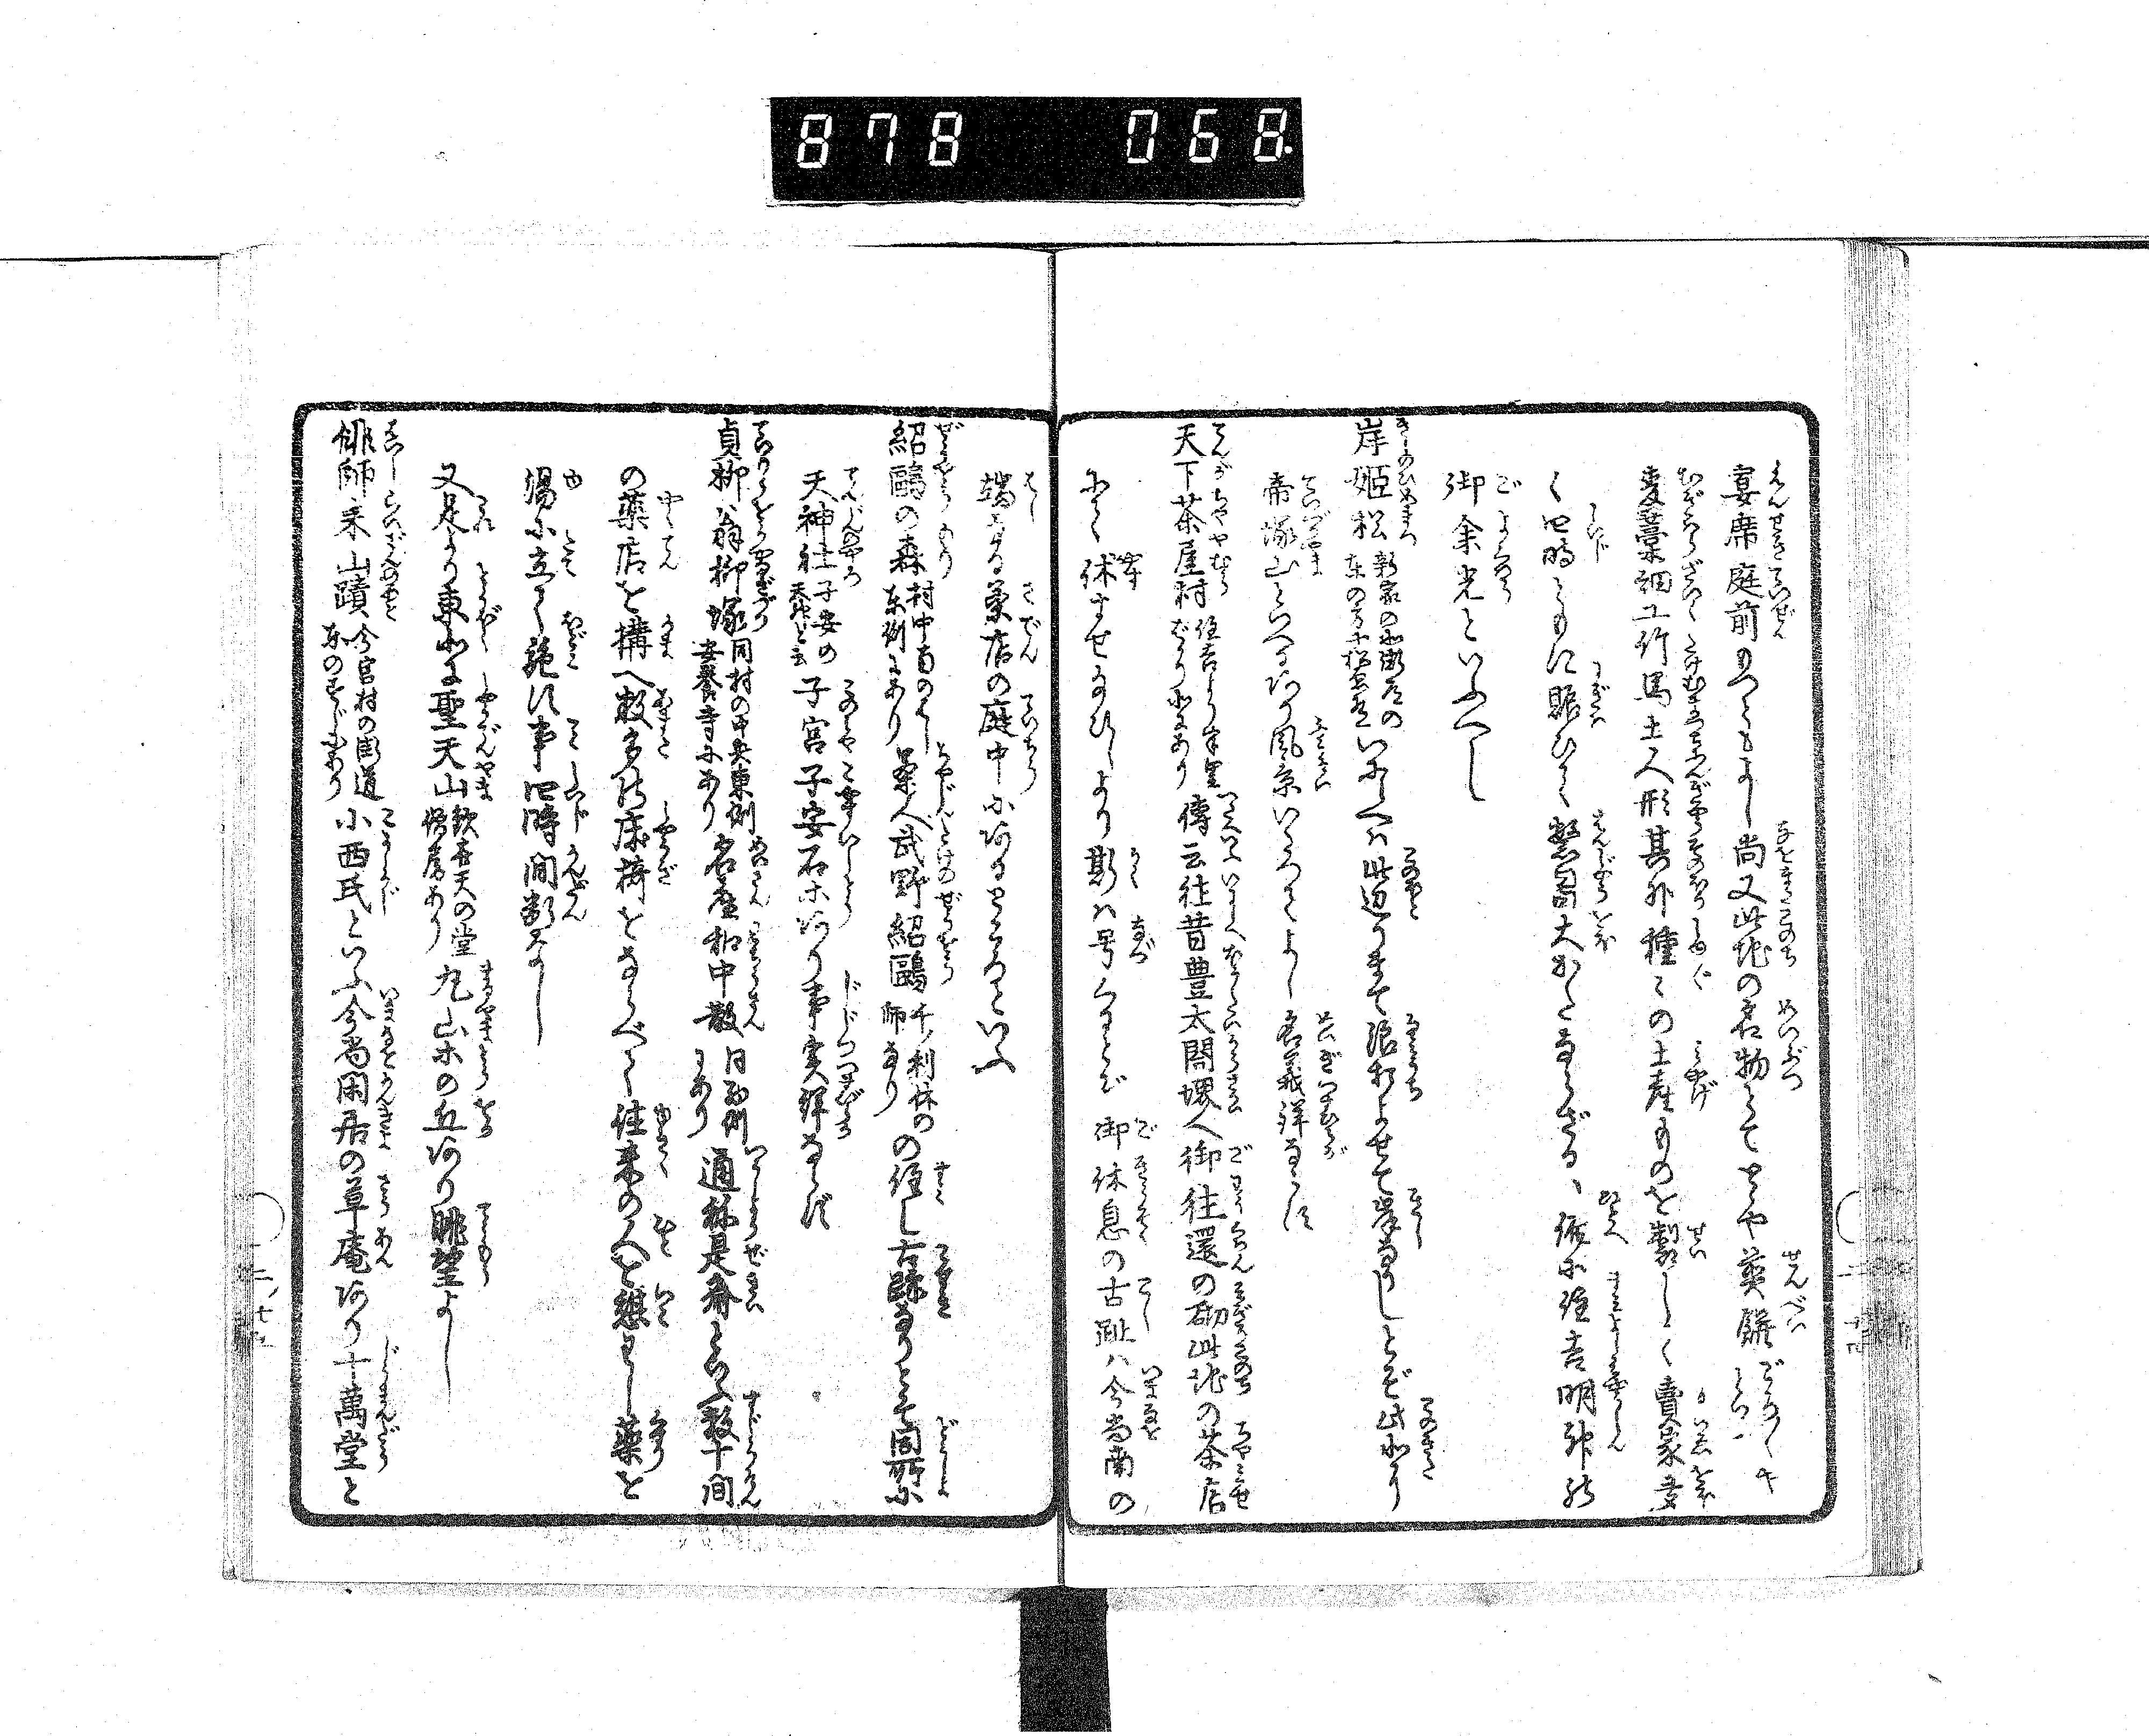 878 068
宴席庭前のつくりもよし尚又此地の名物とてはや煎餅ごろ〳〵せんべいとらへ
麦藁細工竹馬土人形其外種々の土産ものを製しく賣家多
く四時ともに賑ひて繁昌大かたならざる、偏に住吉明神の
御余光といふべし
岸姫松 新家の 東の方に松 いにしへは此辺りまて浪打よせて岸なりしとぞ此わたり
帝塚山といへるありて風景いとよし名義詳ならず
天下茶屋村 住吉より半里ばかり北にあり 傳云往昔豊太閤堺へ御往還の砌此地の茶店
にて休ませ給ひしより斯は号くるとぞ御休息の古趾は今尚南の
端なる茶店の庭中にあるところといふ
紹鷗の森 村中南のはし東側にあり 茶人武野紹鷗 千ノ利休の師なり の住し古跡なりとて同所に
天神社 子安の天神と云 子宮子安石ホあり事実詳ならず
貞柳翁柳塚 同村の中央東側安養寺にあり 名産和中散 同西側にあり 通称是斎といふ数十間
の薬店を構へ数多の床几をならべて往来の人を憩はし薬を
湯に立て施す事四時間断なし
又是より東北に聖天山 歓喜天の堂坊舎あり 丸山ホの丘あり眺望よし
俳師来山蹟 今宮村の街道東のすじにあり 小西氏といふ今尚閑居の草庵あり十萬堂と